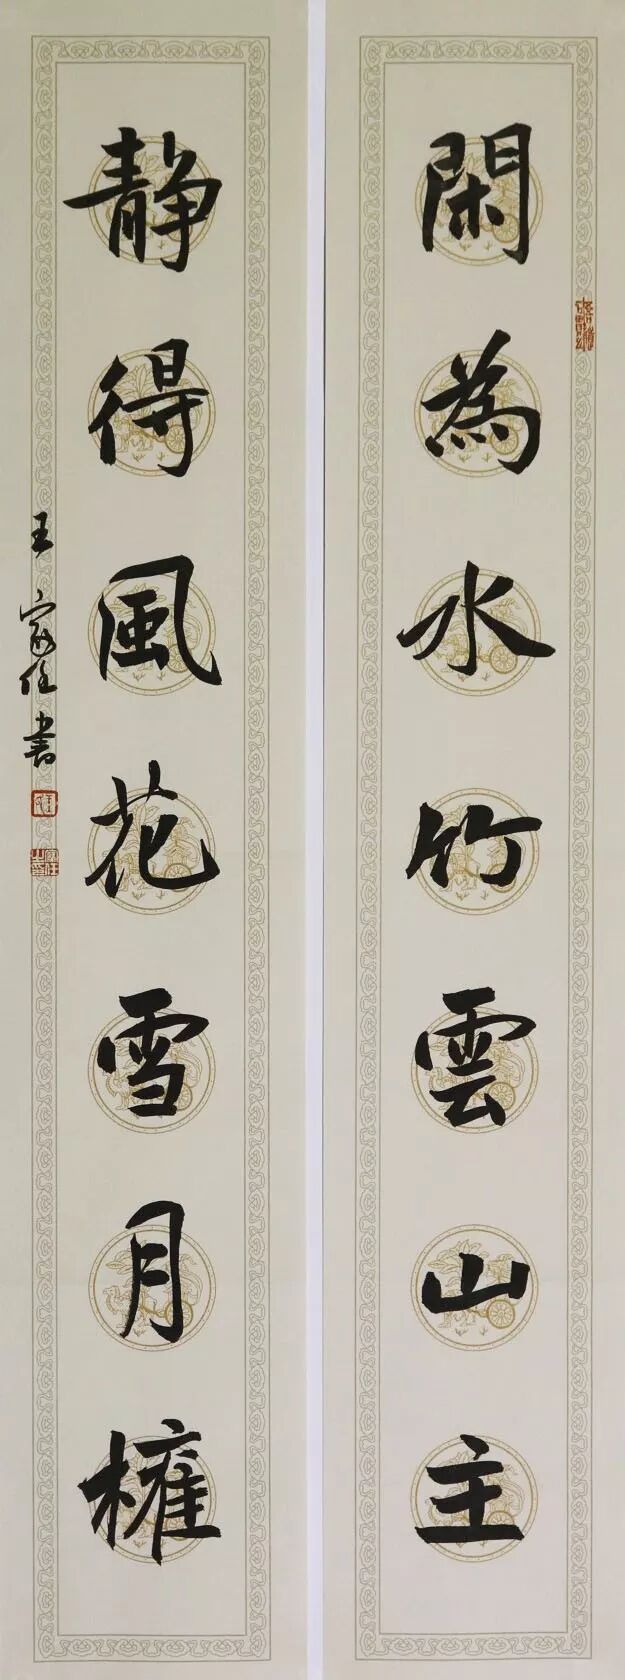 閑為水竹雲山主
静得風花雪月權
王家任書